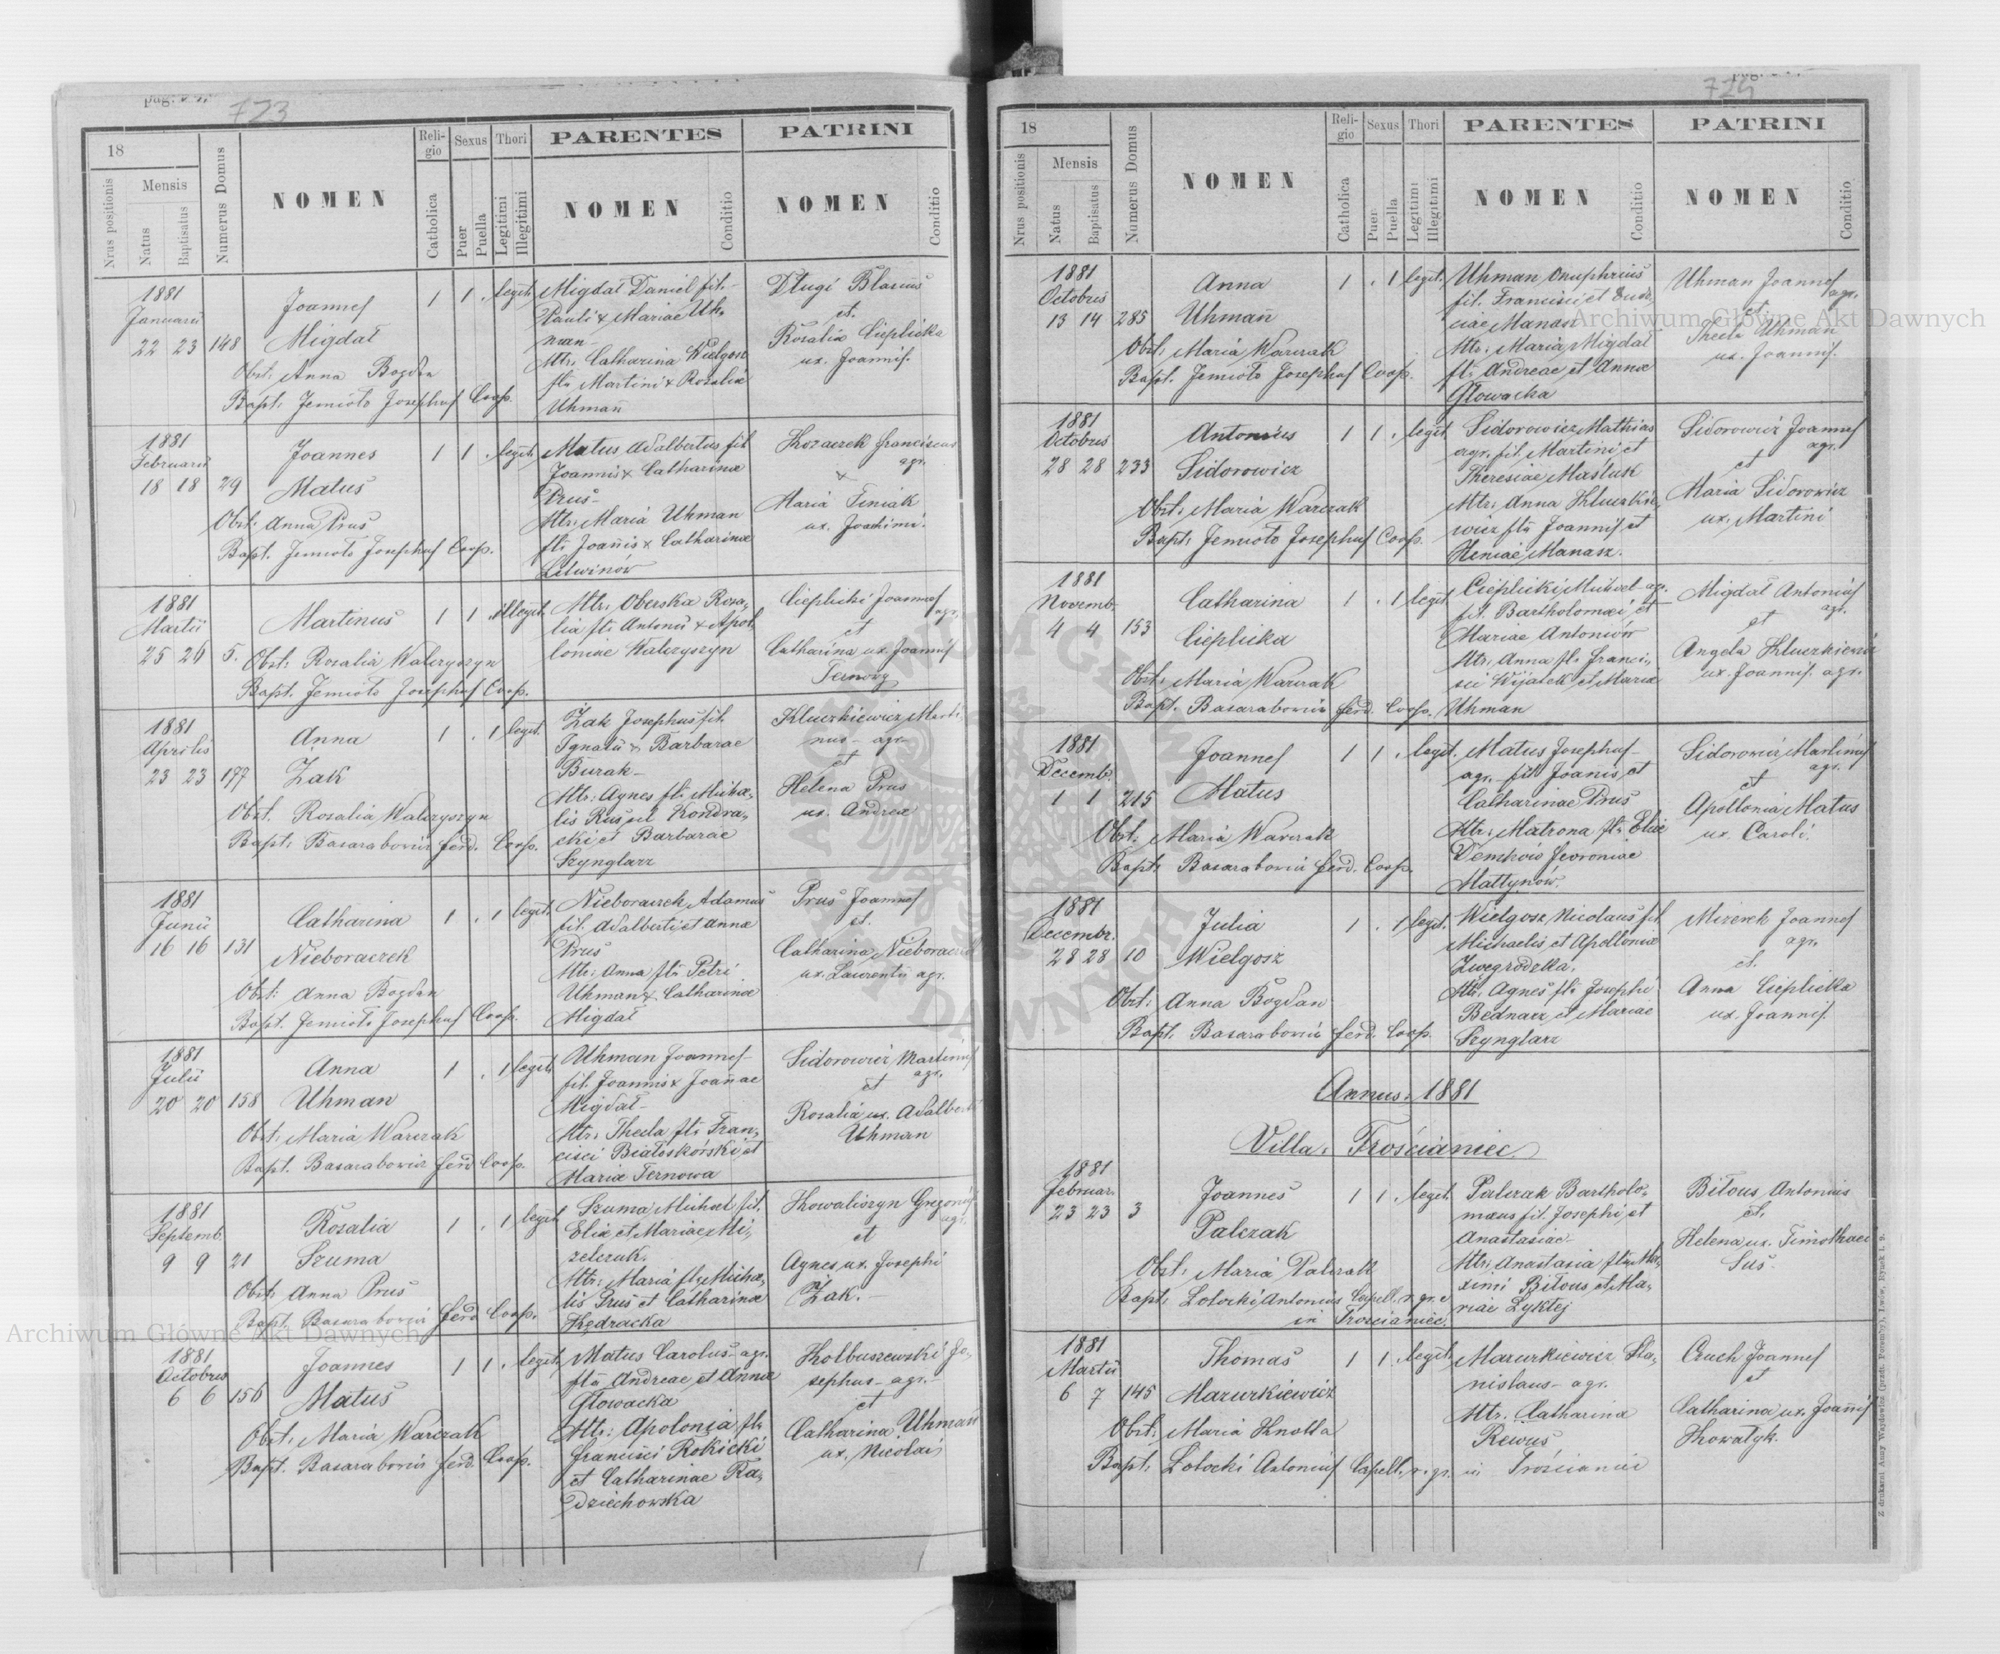 723
18
Nrus positionis
Mensis
Natus
Baptisatus
Numerus Domus
NOMEN
Religio
Catholica
Sexus
Puer
Puella
Thori
Legitimi
Illegitimi
PARENTES
NOMEN
Conditio
PATRINI
NOMEN
Conditio
1881
Januarii
22 23 148
Joannes
Migdał
Obst: Anna Bogdan
Bapt: Jemioło Josephus Coop.
1 1 . legit.
Migdał Daniel fil.
Pauli & Mariae Uh-
man
Mtr: Catharina Wielgosz
fla Martini & Rosalia
Uhmann
Długi Blasius
et.
Rosalia Cieplicka
ux. Joannis.
1881
Februarii
18 18 29
Joannes
Matus
Obst: Anna Prus
Bapt. Jemioło Josephus Coop.
1 1 . legit.
Matus Adalbertus fil
Joannis & Catharina
Prus-
Mtr: Maria Uhman
fla Joannis & Catharina
Litwinów
Kozaczek Franciscus
agr.
&
Maria
ux. Joachimi.
1881
Martii
25 26 5.
Martinus
Obst: Rosalia Walczyszyn
Bapt. Jemioło Josephus Coop.
1 1 . illegit.
Mtr: Oberska Rosa-
lia fla Antonii & Apol-
loniae Walczyszyn
Cieplicki Joannes
agr.
et
Catharina ux. Joannis
1881
Aprilis
23 23 177
Anna
Żak
Obst. Rosalia Walczyszyn
Bapt: Basarabowicz Ferd. Coop.
1 . 1 legit.
Żak Josephus fil.
Ignatii & Barbarae
Burak-
Mtr: Agnes fla Micha-
lis Kondra-
cki et Barbarae
Szynglarz
Kluczkiewicz Marti-
nus - agr.
et
Helena Prus
ux. Andrea
1881
Junii
16 16 131
Catharina
Nieboraczek
Obst: Anna Bogdan
Bapt. Jemioło Josephus Coop.
1 . 1 legit.
Nieboraczek Adamus
fil. Adalberti et Anna
Prus
Mtr: Anna fla Petri
Uhman & Catharina
Migdał
Prus Joannes
et.
Catharina Nieboraczek
ux. Laurentii agr.
1881
Julii
20 20 158
Anna
Uhman
Obst: Maria Warczak
Bapt. Basarabowicz Ferd Coop.
1 . 1 legit.
Uhman Joannes-
fil. Joannis & Joannae
Migdał-
Mtr: Thecla fla Fran-
cisci Białoskórski et
Maria Ternowa
Sidorowicz Martinus
agr.
et
Rosalia ux. Adalberti
Uhman
1881
Septemb.
9 9 21
Rosalia
Szuma
Obst: Anna Prus
Bapt. Basarabowicz Ferd Coop.
1 . 1 legit.
Szuma Michael fil.
Elia et Mariae Mi-
zelczuk.
Mtr: Maria fla Micha-
lis Prus et Catharina
Kędracka
Kowaliszyn Gregorius
agr.
et
Agnes ux. Josephi
Żak.-
1881
Octobris
6 6 156
Joannes
Matus
Obst: Maria Warczak
Bapt. Basarabowicz Ferd. Coop.
1 1 . legit.
Matus Carolus- agr.
fla Andreae et Anna
Głowacka
Mtr: Apolonia fla
Francisci Rokicki
et Catharinae Ra-
dziechowska
Kolbuszewski Jo-
sephus - agr.-
et
Catharina Uhman
ux. Nicolai
18
Nrus positionis
Mensis
Natus
Baptisatus
Numerus Domus
NOMEN
Religio
Catholica
Sexus
Puer
Puella
Thori
Legitimi
Illegitimi
PARENTES
NOMEN
Conditio
PATRINI
NOMEN
Conditio
1881
Octobris
13 14 285
Anna
Uhmann
Obst. Maria Warczak
Bapt. Jemioło Josephus Coop.
1 . 1 legit.
Uhman Onuphrius
fil. Francisci et Eudo-
ciae Manasz
Mtr: Maria Migdał
fla Andreae et Anna
Głowacka
Uhman Joannes
agr.
et
Thecla Uhman
ux. Joannis.
1881
Octobris
28 28 233
Antonius
Sidorowicz
Obst: Maria Warczak
Bapt: Jemioło Josephus Coop.
1 1 . legit
Sidorowicz Mathias
agr. fil. Martini et
Theresiae Masluk
Mtr: Anna Kluczkie-
wicz fla Joannis et
Xeniae Manasz.
Sidorowicz Joannes
agr.
et
Maria Sidorowicz
ux. Martini
1881
Novemb.
4 4 153
Catharina
Cieplicka
Obst: Maria Warczak
Bapt. Basarabowicz Ferd. Coop.
1 . 1 legit
Cieplicki Michael agr.
fil. Bartholomaei et
Mariae Antoniów
Mtr: Anna fla Franci-
sci Wijatek et Maria
Uhman
Migdał Antonius
agr.
et
Angela Kluczkiewicz
ux. Joannis. agr.
1881
Decemb.
1 1 215
Joannes
Matus
Obst: Maria Warczak
Bapt: Basarabowicz Ferd. Coop.
1 1 . legit.
Matus Josephus-
agr. fil Joannis et
Catharinae Prus
Mtr: Matrona fla Eliae
Demków Fevroniae
Mattynów.
Sidorowicz Martinus
agr.
et
Apollonia Matus
ux. Caroli.
1881
Decembr.
28 28 10
Julia
Wielgosz
Obst: Anna Bogdan
Bapt: Basarabowicz Ferd. Coop.
1 . 1 legit.
Wielgosz Nicolaus fil
Michaelis et Apollonia
Zwegrodzka.
Mtr: Agnes fla Josephi
Bednarz et Mariae
Szynglarz
Mizerek Joannes
agr.
et.
Anna Cieplicka
ux. Joannis.
Annus: 1881
Villa: Trościaniec
1881
Februar.
23 23 3
Joannes
Palczak
Obst: Maria Palczak
Bapt: Łotocki Antonius Capell. r. gr. c
in Trościaniec.
1 1 . legit.
Palczak Bartholo-
maeus fil. Josephi et
Anastasiae
Mtr: Anastasia fla Ma-
ximi Biłous et Ma-
riae Łyktej
Biłous Antonius
et.
Helena ux. Timothaei
Sus.
1881
Martii
6 7 145
Thomas
Mazurkiewicz
Obst: Maria Knolla
Bapt. Łotocki Antonius Capell. r. gr. in Trościaniec
1 1 . legit
Mazurkiewicz Sta-
nislaus- agr.
Mtr. Catharina
Rewus
Czuch Joannes
et
Catharina ux. Joannis
Kowałyk.
Archiwum Główne Akt Dawnych
Archiwum Główne Akt Dawnych